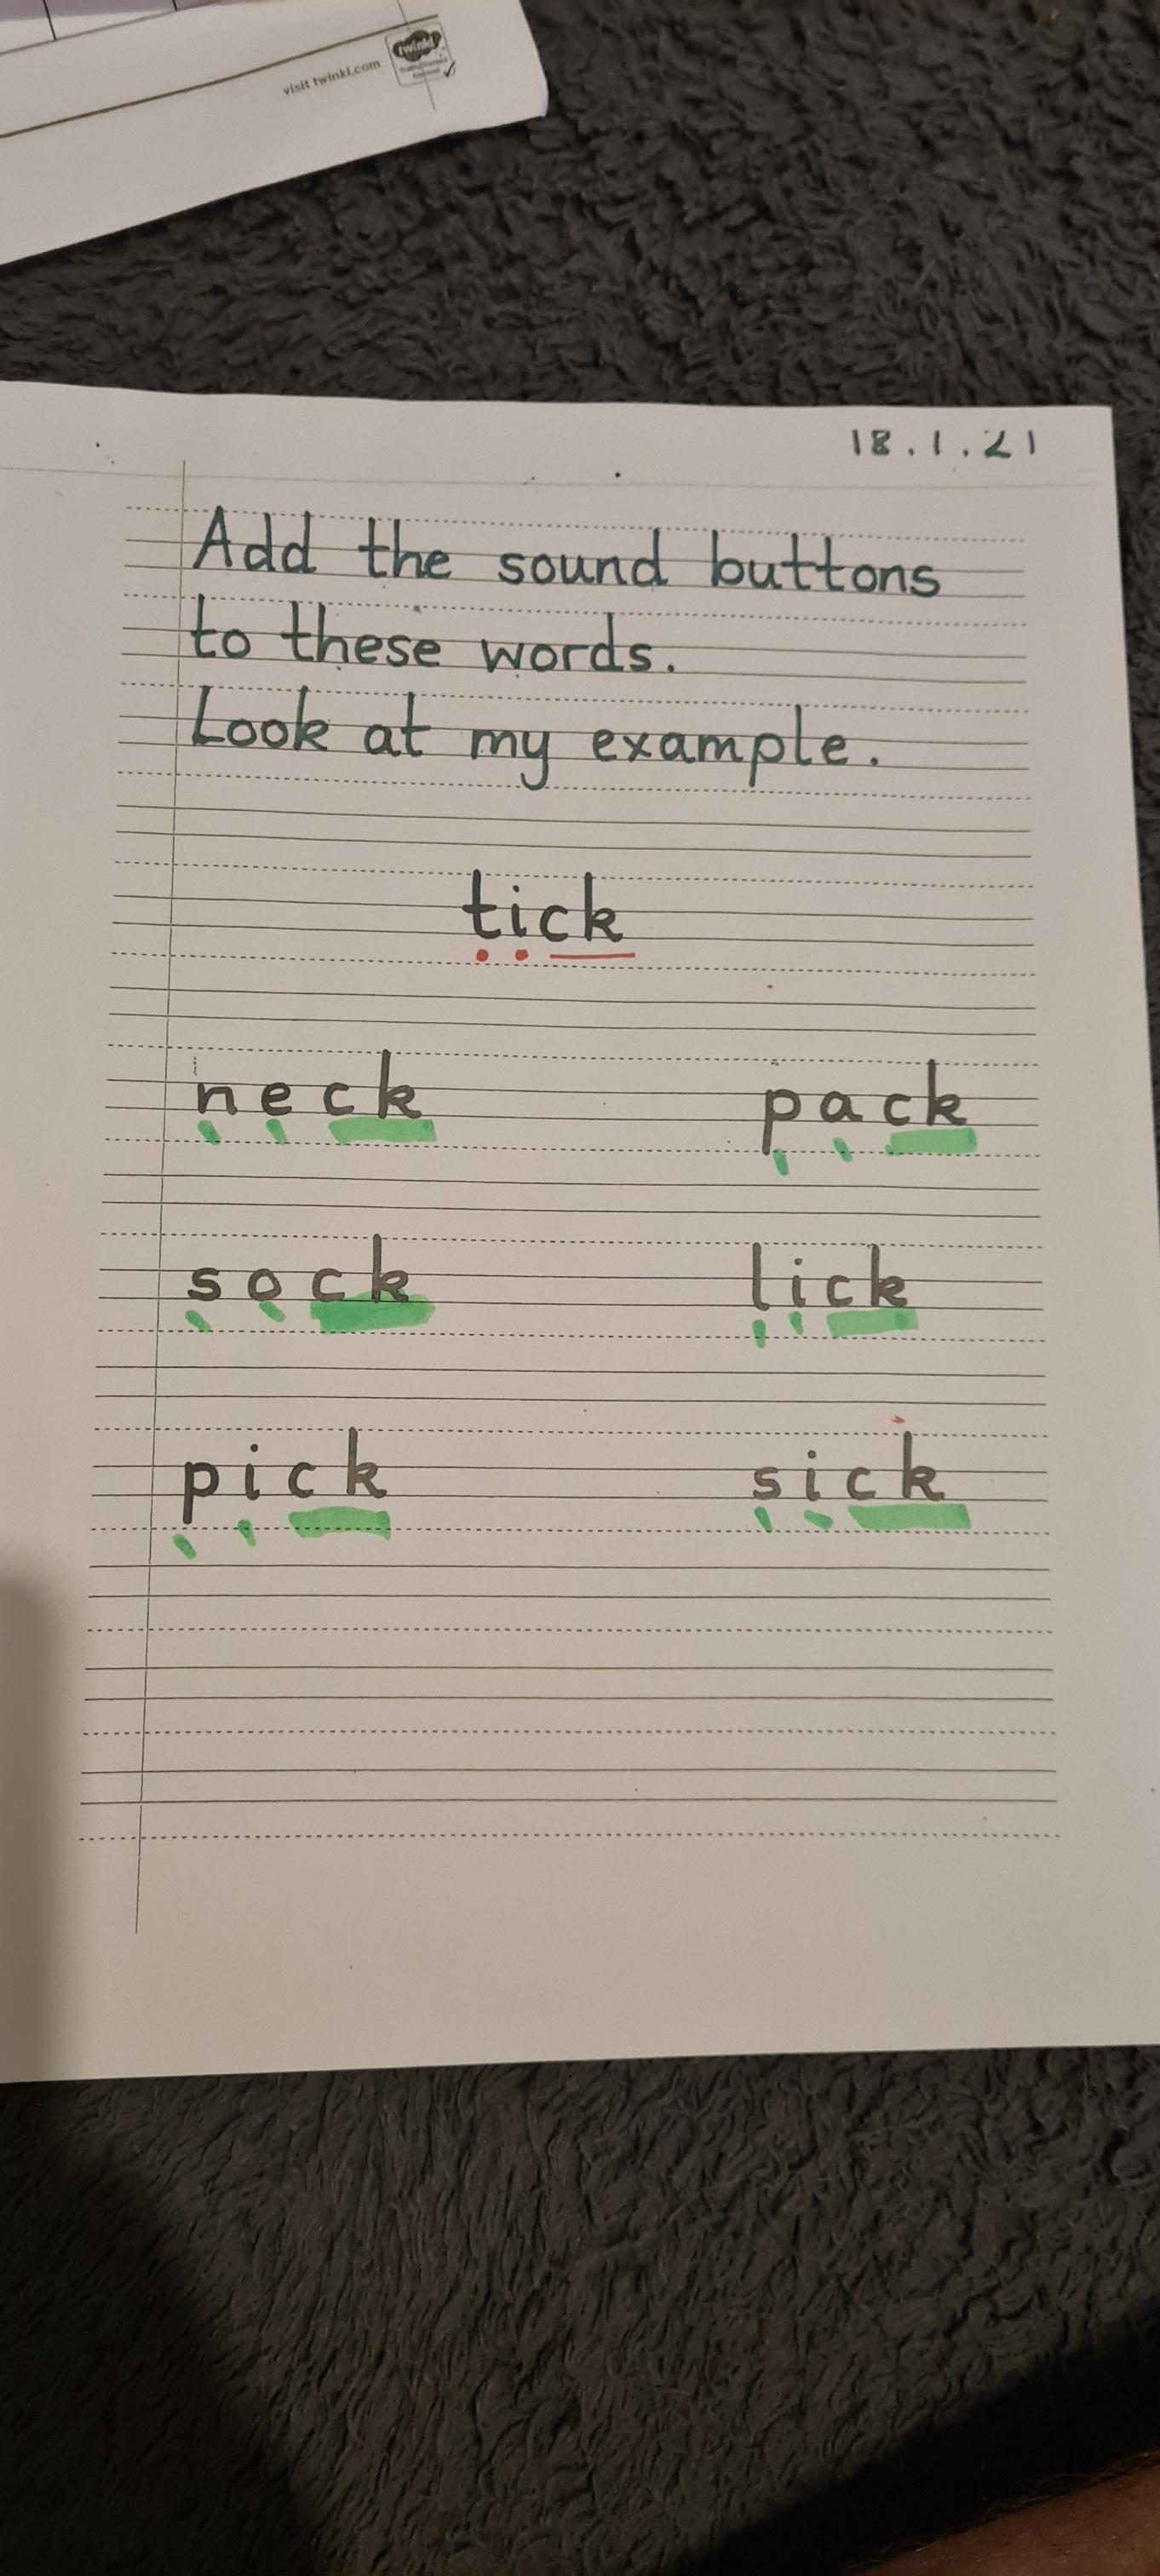 visit twinkl.com
twinkl
18.1.21
Add the sound buttons
to these words.
Look at my example.
tick
neck pack
sock lick
pick sick